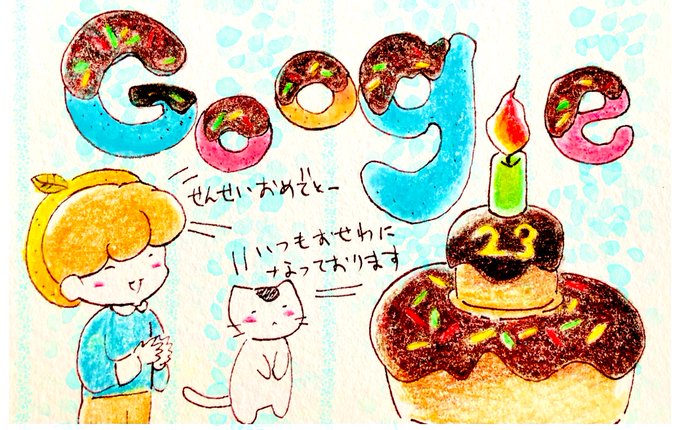 Google
せんせいおめでとー
いつもおせわに
なっております
23